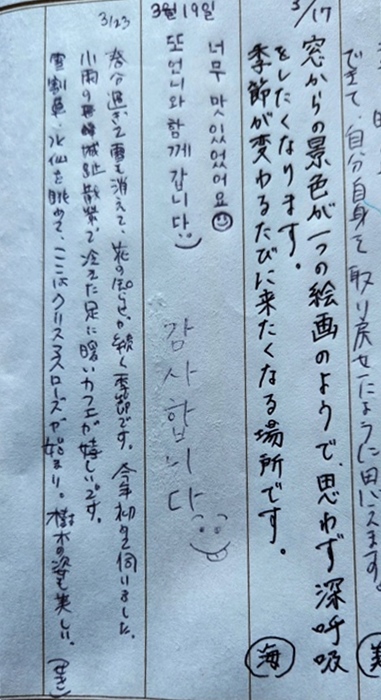 できて、自分自身を取り戻せたように思えます。
3/17
窓からの景色が一つの絵画のようで、思わず深呼吸
をしたくなります。
季節が変わるたびに来たくなる場所です。
海
3월19일
너무 맛있었어요
또 언니와 함께 갑니다
감사합니다
3/23
春分過ぎて雪も消えて、花の知らせが続く季節です。今年 伺いました。
小雨の 城址散策で冷えた足に暖いカフェが嬉しいです。
雪割草、水仙を眺めて、ここはクリスマスローズが始まり。樹木の姿も美しい。